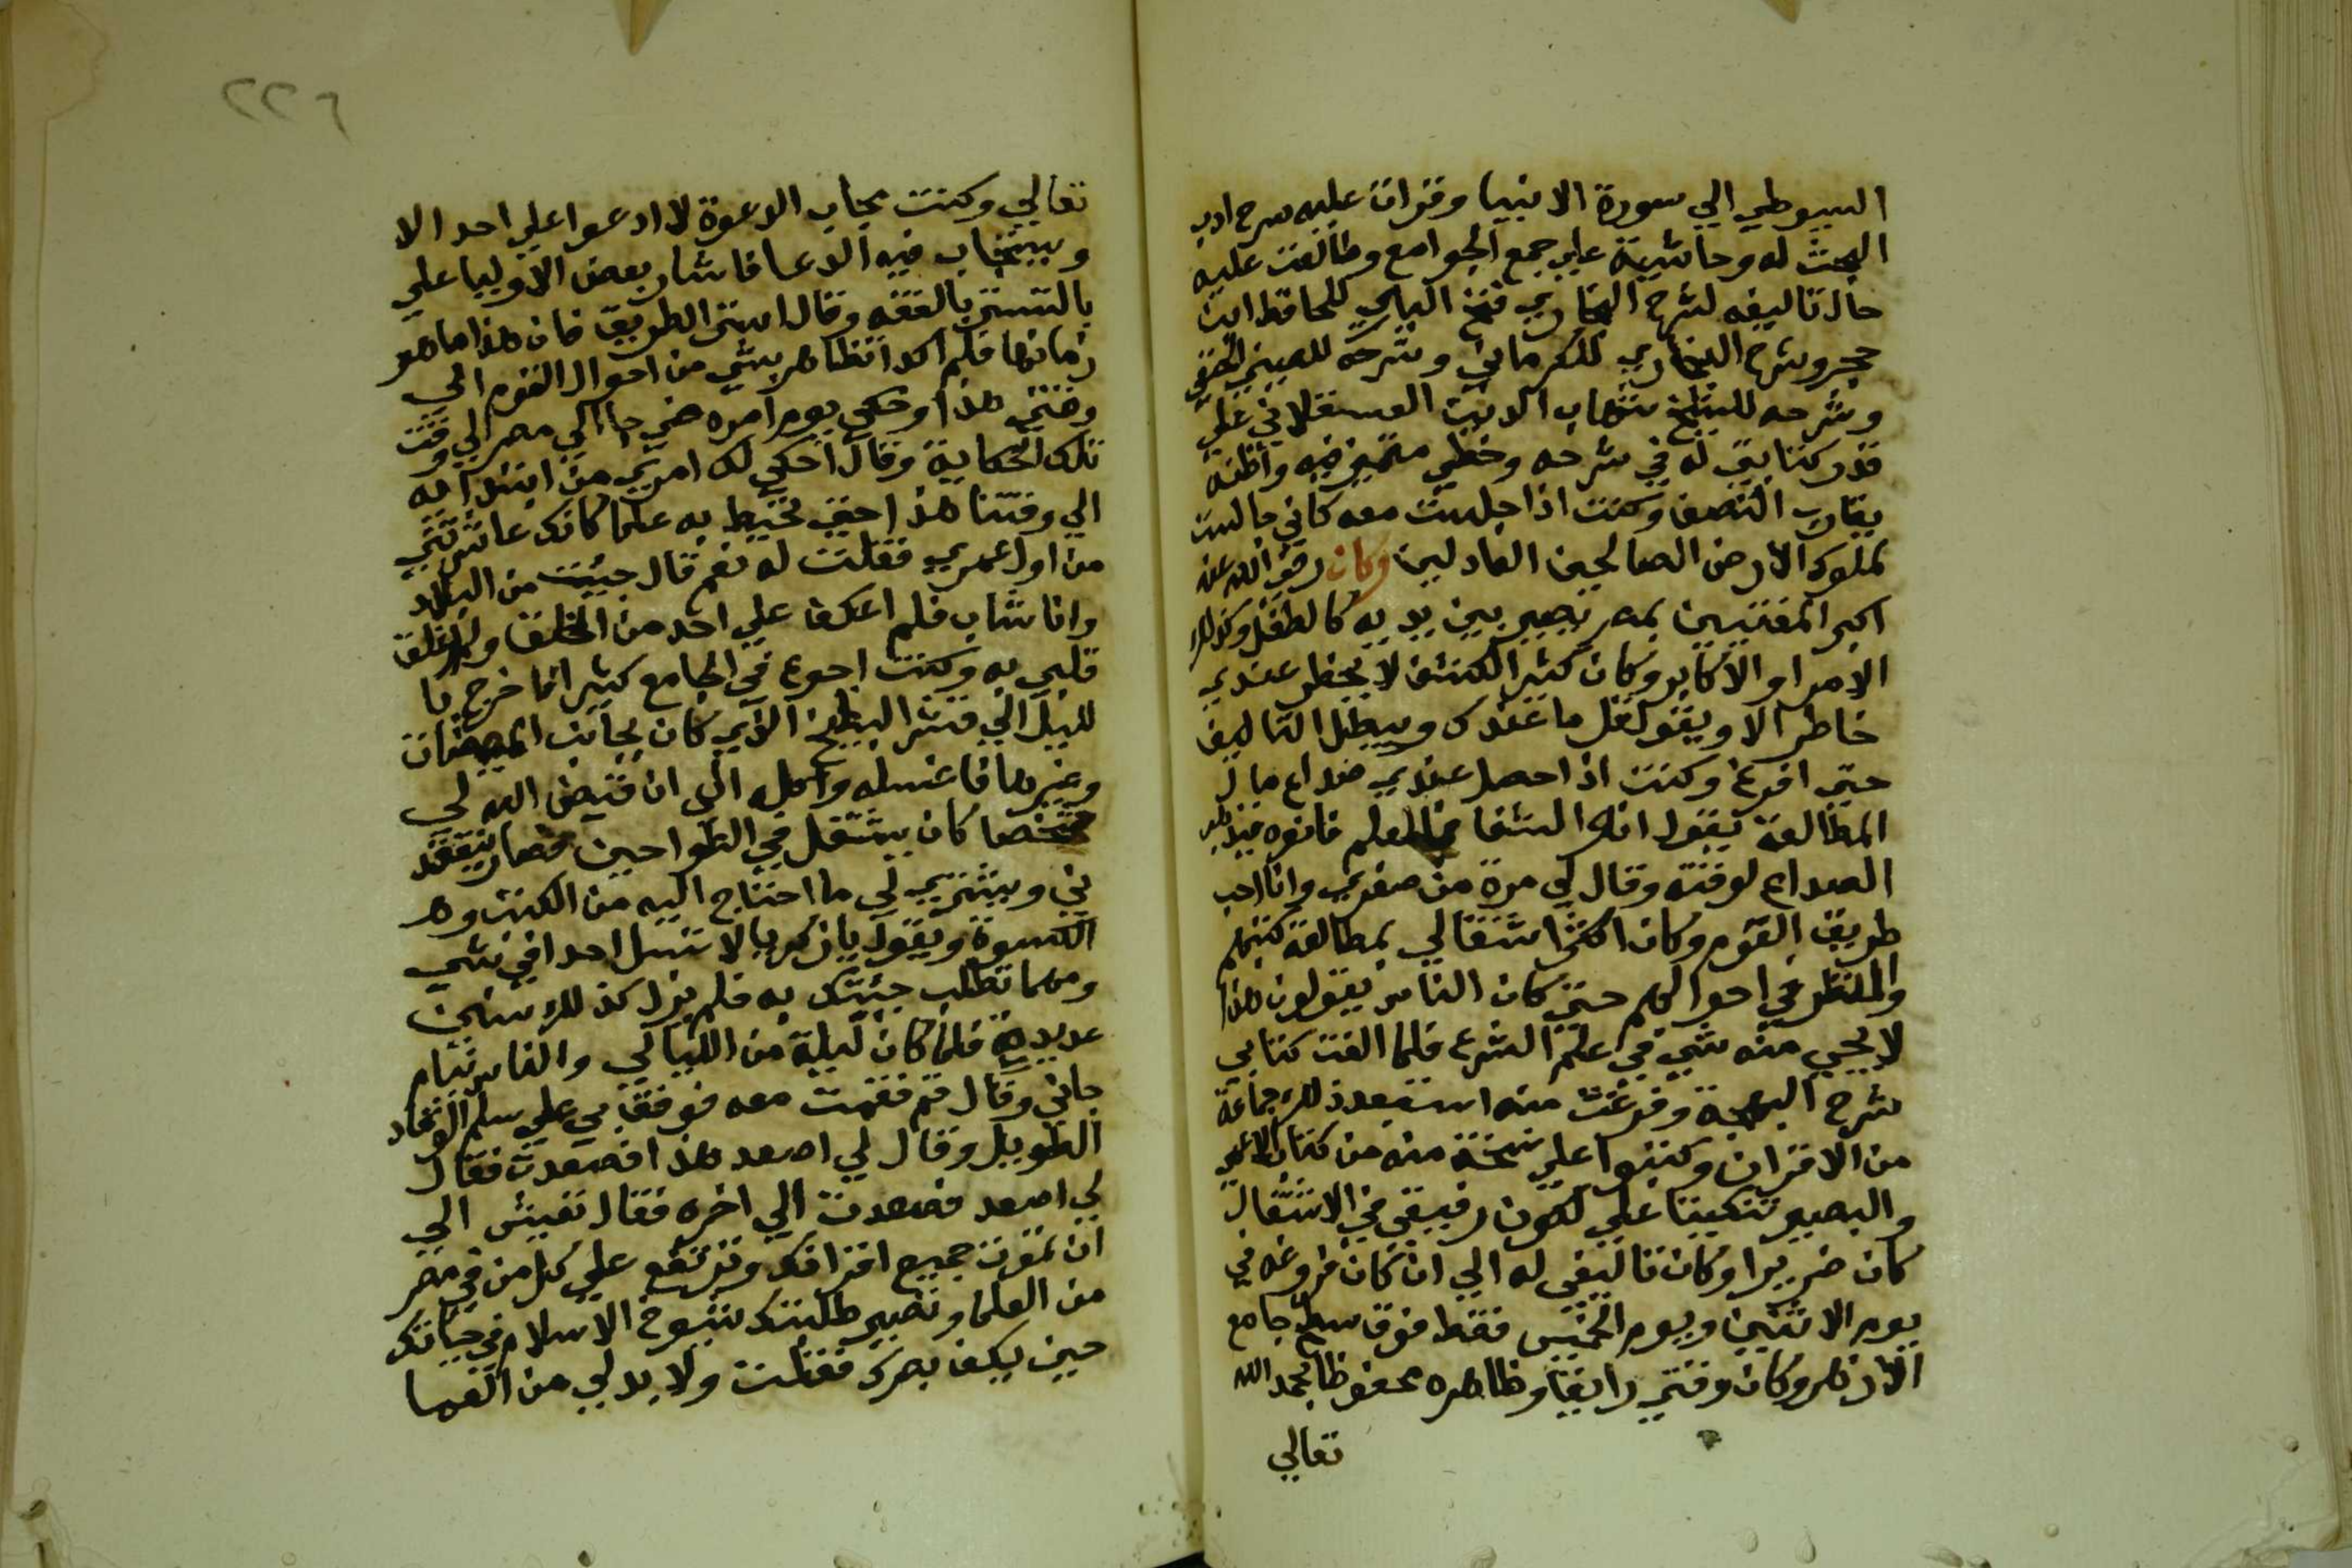 السيوطي الي سورة الانبيا وقرات عليه شرح ادب
البحث له وحاشية علي جمع الجوامع وطالعت عليه
حال تاليفه لشرح البخاري فتح الباري للحافظ ابن
حجر وشرح البخاري للكرماني وشرحه للعيني الحنفي
وشرحه للشيخ شهاب الدين العسقلاني علي
قدر كتابتي له في شرحه وخطي متميز فيه واظنه
يقارب النصف وكنت اذا جلست معه كاني جالست
ملوك الارض الصالحين العادلين وكان رضي الله عنه
اكبر المفتيين بمصر يصير بين يديه كالطفل وكذلك
الامرا والاكابر وكان كثير الكشف لا يخطر عندي
خاطر الا ويقول قل ما عندك ويبطل التاليف
حتي افرغ وكنت اذا حصل عندي صداع حال
المطالعة يقول انو الشفا بالعلم فانوه فيذهب
الصداع لوقته وقال لي مرة من صغري وانا احب
طريق القوم وكان اكثر اشتغالي بمطالعة كتبهم
والنظر في احوالهم حتي كان الناس يقولون هذا
لا يجي منه شي في علم الشرع فلما الفت كتابي
شرح البهجة وفرغت منه استبعد ذلك جماعة
من الاقران وكتبوا علي نسخة منه من كتاب الاعمي
والبصير تنكيتا علي لكون رفيقي في الاشتغال
كان ضريرا وكان تاليفي له الي ان كان فروغه في
يوم الاثنين ويوم الخميس فقط فوق سطح جامع
الازهر وكان وقتي رايقا وظاهره محفوظا بحمد الله
تعالي
٢٢٦
تعالي وكنت مجاب الدعوة لا ادعوا علي احد الا
ويستجاب فيه الدعا فاشار بعض الاوليا علي
بالتستر بالفقه وقال استر الطريق فان هذا ما هو
زمانها فلم اكد اتظاهر بشي من احوال القوم الي
وقتي هذا وحكي يوما امره حين جا الي مصر الي وقت
تلك الحكاية وقال احكي لك امري من ابتدايه
الي وقتنا هذا حتي تحيط به علما كانك عاشرتني
من اول عمري فقلت له نعم قال جيت من البلاد
وانا شاب فلم اعكف علي احد من الخلق ولم اعلق
قلبي به وكنت اجوع في الجامع كثيرا فاخرج با
لليل الي قشر البطيخ الذي كان بجانب الميضات
وغيرها فاغسله واكله الي ان قيض الله لي
شخصا كان يشتغل في الطواحين فصار يتفقد
ني ويشتري لي ما احتاج اليه من الكتب و
الكسوة ويقول يا زكريا لا تسل احدا في شي
ومهما تطلب جيتك به فلم يزل كذلك سنين
عديدة فلما كان ليلة من الليالي والناس نيام
جاني وقال قم فقمت معه فوقف بي علي سلم الوقاد
الطويل وقال لي اصعد هذا فصعدت فقال
لي اصعد فصعدت الي اخره فقال تعيش الي
ان تموت جميع اقرانك وترتفع علي كل من في مصر
من العلما وتصير طلبتك شيوخ الاسلام في حياتك
حين يكف بصرك فقلت ولا بد لي من العما